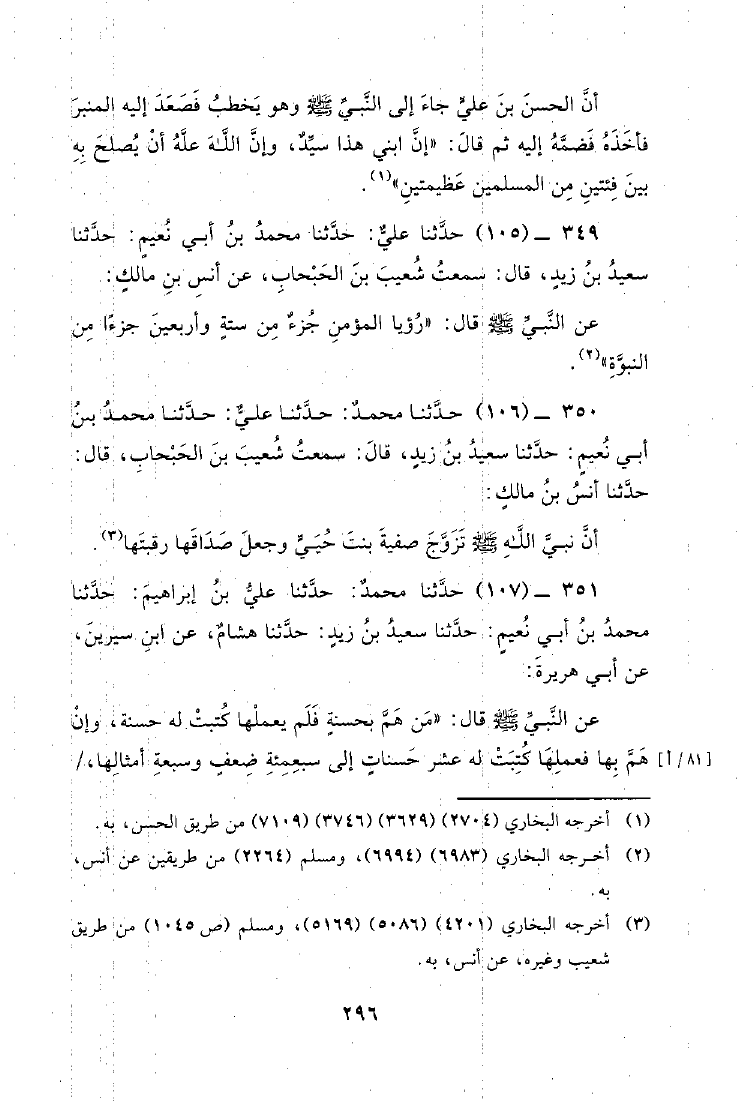 أنَّ الحسنَ بنَ عليٍّ جاءَ إلى النَّبيِّ ﷺ وهو يَخطبُ فَصَعَدَ إليه المنبرَ
فأخَذَهُ فَضمَّهُ إليه ثم قالَ: «إنَّ ابني هذا سيِّد، وإنَّ اللَّـهَ علَّهُ أنْ يُصلحَ بِهِ
بينَ فِئتينِ مِن المسلمين عَظيمتينِ»(١).
٣٤٩ ــ (١٠٥) حدَّثنا عليٌّ: حدَّثنا محمدُ بنُ أبي نُعيمٍ: حدَّثنا
سعيدُ بنُ زيدٍ، قال: سمعتُ شُعيبَ بنَ الحَبْحابِ، عن أنسِ بنِ مالكٍ:
عن النَّبـيِّ ﷺ قال: «رُؤيا المؤمنِ جُزءٌ مِن ستةٍ وأربعينَ جزءًا مِن
النبوَّةِ»(٢).
٣٥٠ ــ (١٠٦) حدَّثنا محمدٌ: حدَّثنا عليٌّ: حدَّثنا محمدُ بنُ
أبـي نُعيمٍ: حدَّثنا سعيدُ بنُ زيدٍ، قالَ: سمعتُ شُعيبَ بنَ الحَبْحابِ، قال:
حدَّثنا أنسُ بنُ مالكٍ:
أنَّ نبيَّ اللَّـهِ ﷺ تَزَوَّجَ صفيةَ بنتَ حُيَـيٍّ وجعلَ صَدَاقَها رقبتَها(٣).
٣٥١ ــ (١٠٧) حدَّثنا محمدٌ: حدَّثنا عليُّ بنُ إبراهيمَ: حدَّثنا
محمدُ بنُ أبي نُعيمٍ: حدَّثنا سعيدُ بنُ زيدٍ: حدَّثنا هشامٌ، عن ابنِ سيرينَ،
عن أبـي هريرةَ:
عن النَّبـيِّ ﷺ قال: «مَن هَمَّ بحسنةٍ فَلَم يعملْها كُتبتْ له حسنة، وإنْ
[٨١/أ] هَمَّ بِها فعملِهَا كُتِبَتْ له عشر حَسناتٍ إلى سبعِمئةِ ضِعفٍ وسبعةِ أمثالِها،/
(١) أخرجه البخاري (٢٧٠٤) (٣٦٢٩) (٣٧٤٦) (٧١٠٩) من طريق الحسن، به.
(٢) أخـرجه البخاري (٦٩٨٣) (٦٩٩٤)، ومسلم (٢٢٦٤) من طريقين عن أنس،
به.
(٣) أخرجه البخاري (٤٢٠١) (٥٠٨٦) (٥١٦٩)، ومسلم (ص ١٠٤٥) من طريق
شعيب وغيره، عن أنس، به.
٢٩٦